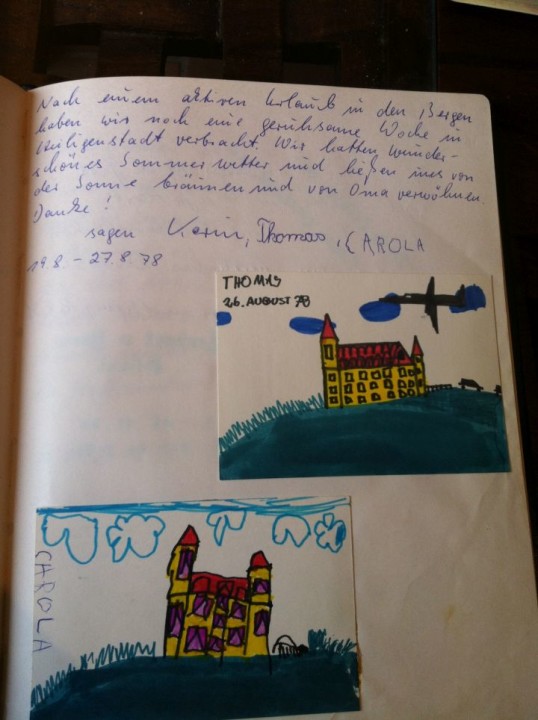 Nach einem aktiven Urlaub in den Bergen
haben wir noch eine geruhsame Woche in
Heiligenstadt verbracht. Wir hatten wunder-
schönes Sommerwetter und ließen uns von
der Sonne bräunen und von Oma verwöhnen.
Danke!
sagen Karin, Thomas, CAROLA
19.8. – 27.8.78
THOMAS
26. AUGUST 78
CAROLA